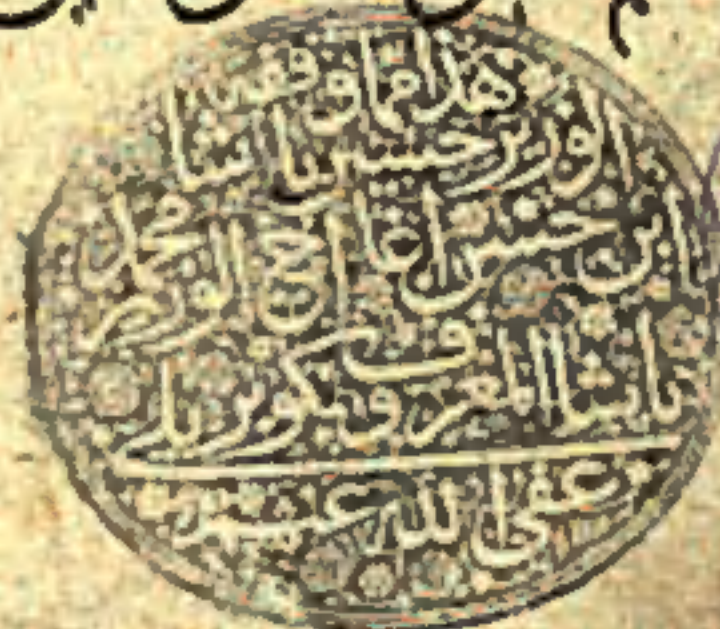 هذا مما وقفه
الوزير حسين باشا
ابن حسن آغا أخ الوزير محمد
باشا المعروف بكوبريلي
عفى الله عنهم